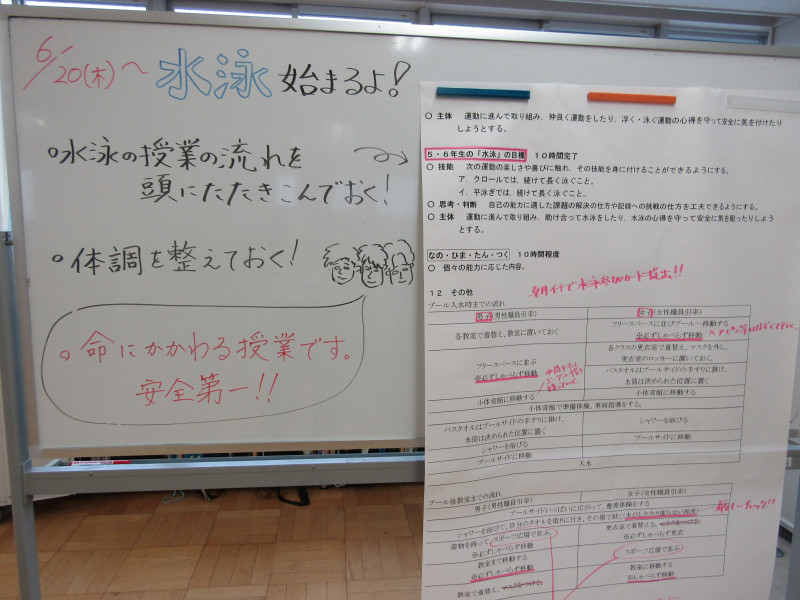 6/20(木)〜 水泳 始まるよ!
○水泳の授業の流れを
頭にたたきこんでおく!
○体調を整えておく!
○命にかかわる授業です。
安全第一!!
○ 主体 運動に進んで取り組み、仲良く運動をしたり、浮く・泳ぐ運動の心得を守って安全に気を付けたり
しようとする。
5・6年生の「水泳」の目標 10時間完了
○ 技能 次の運動の楽しさや喜びに触れ、その技能を身に付けることができるようにする。
ア、クロールでは、続けて長く泳ぐこと。
イ、平泳ぎでは、続けて長く泳ぐこと。
○ 思考・判断 自己の能力に適した課題の解決の仕方や記録への挑戦の仕方を工夫できるようにする。
○ 主体 運動に進んで取り組み、助け合って水泳をしたり、水泳の心得を守って安全に気を配ったりしよう
とする。
なの・ひま・たん・つく 10時間程度
○ 個々の能力に応じた内容。
朝イチで水泳参加カード提出!!
12 その他
プール入水時までの流れ
男子(男性職員引率) 女子(女性職員引率)
各教室で着替え、教室に置いておく
フリースペースに並びプールへ移動する
※必ずしゃべらず移動
各クラスの更衣室で着替え、マスクを外し、
更衣室のロッカーに置いておく。
フリースペースに並ぶ
※必ずしゃべらず移動
バスタオルはプールサイドの手すりに掛け、
水筒は決められた位置に置く
小体育館に移動する 小体育館に移動する
小体育館で準備体操、事前指導をする。
バスタオルはプールサイドの手すりに掛け、
水筒は決められた位置に置く
シャワーを浴びる
シャワーを浴びる
プールサイドに移動
プールサイドに移動
入水
プール後教室までの流れ
男子(男性職員引率) 女子(女性職員引率)
プールサイドいっぱいに広がって、整理体操をする
シャワーを浴びて、自分のタオルを取りに行き、その場で拭く(水がしたたり落ちない程度)
荷物を持って、スポーツ広場で並ぶ
※必ずしゃべらず移動
更衣室で着替える。
※必ずしゃべらず更衣
教室まで移動する
※必ずしゃべらず移動
スポーツ広場で並ぶ
教室に移動する
※しゃべらず移動
教室で着替え、